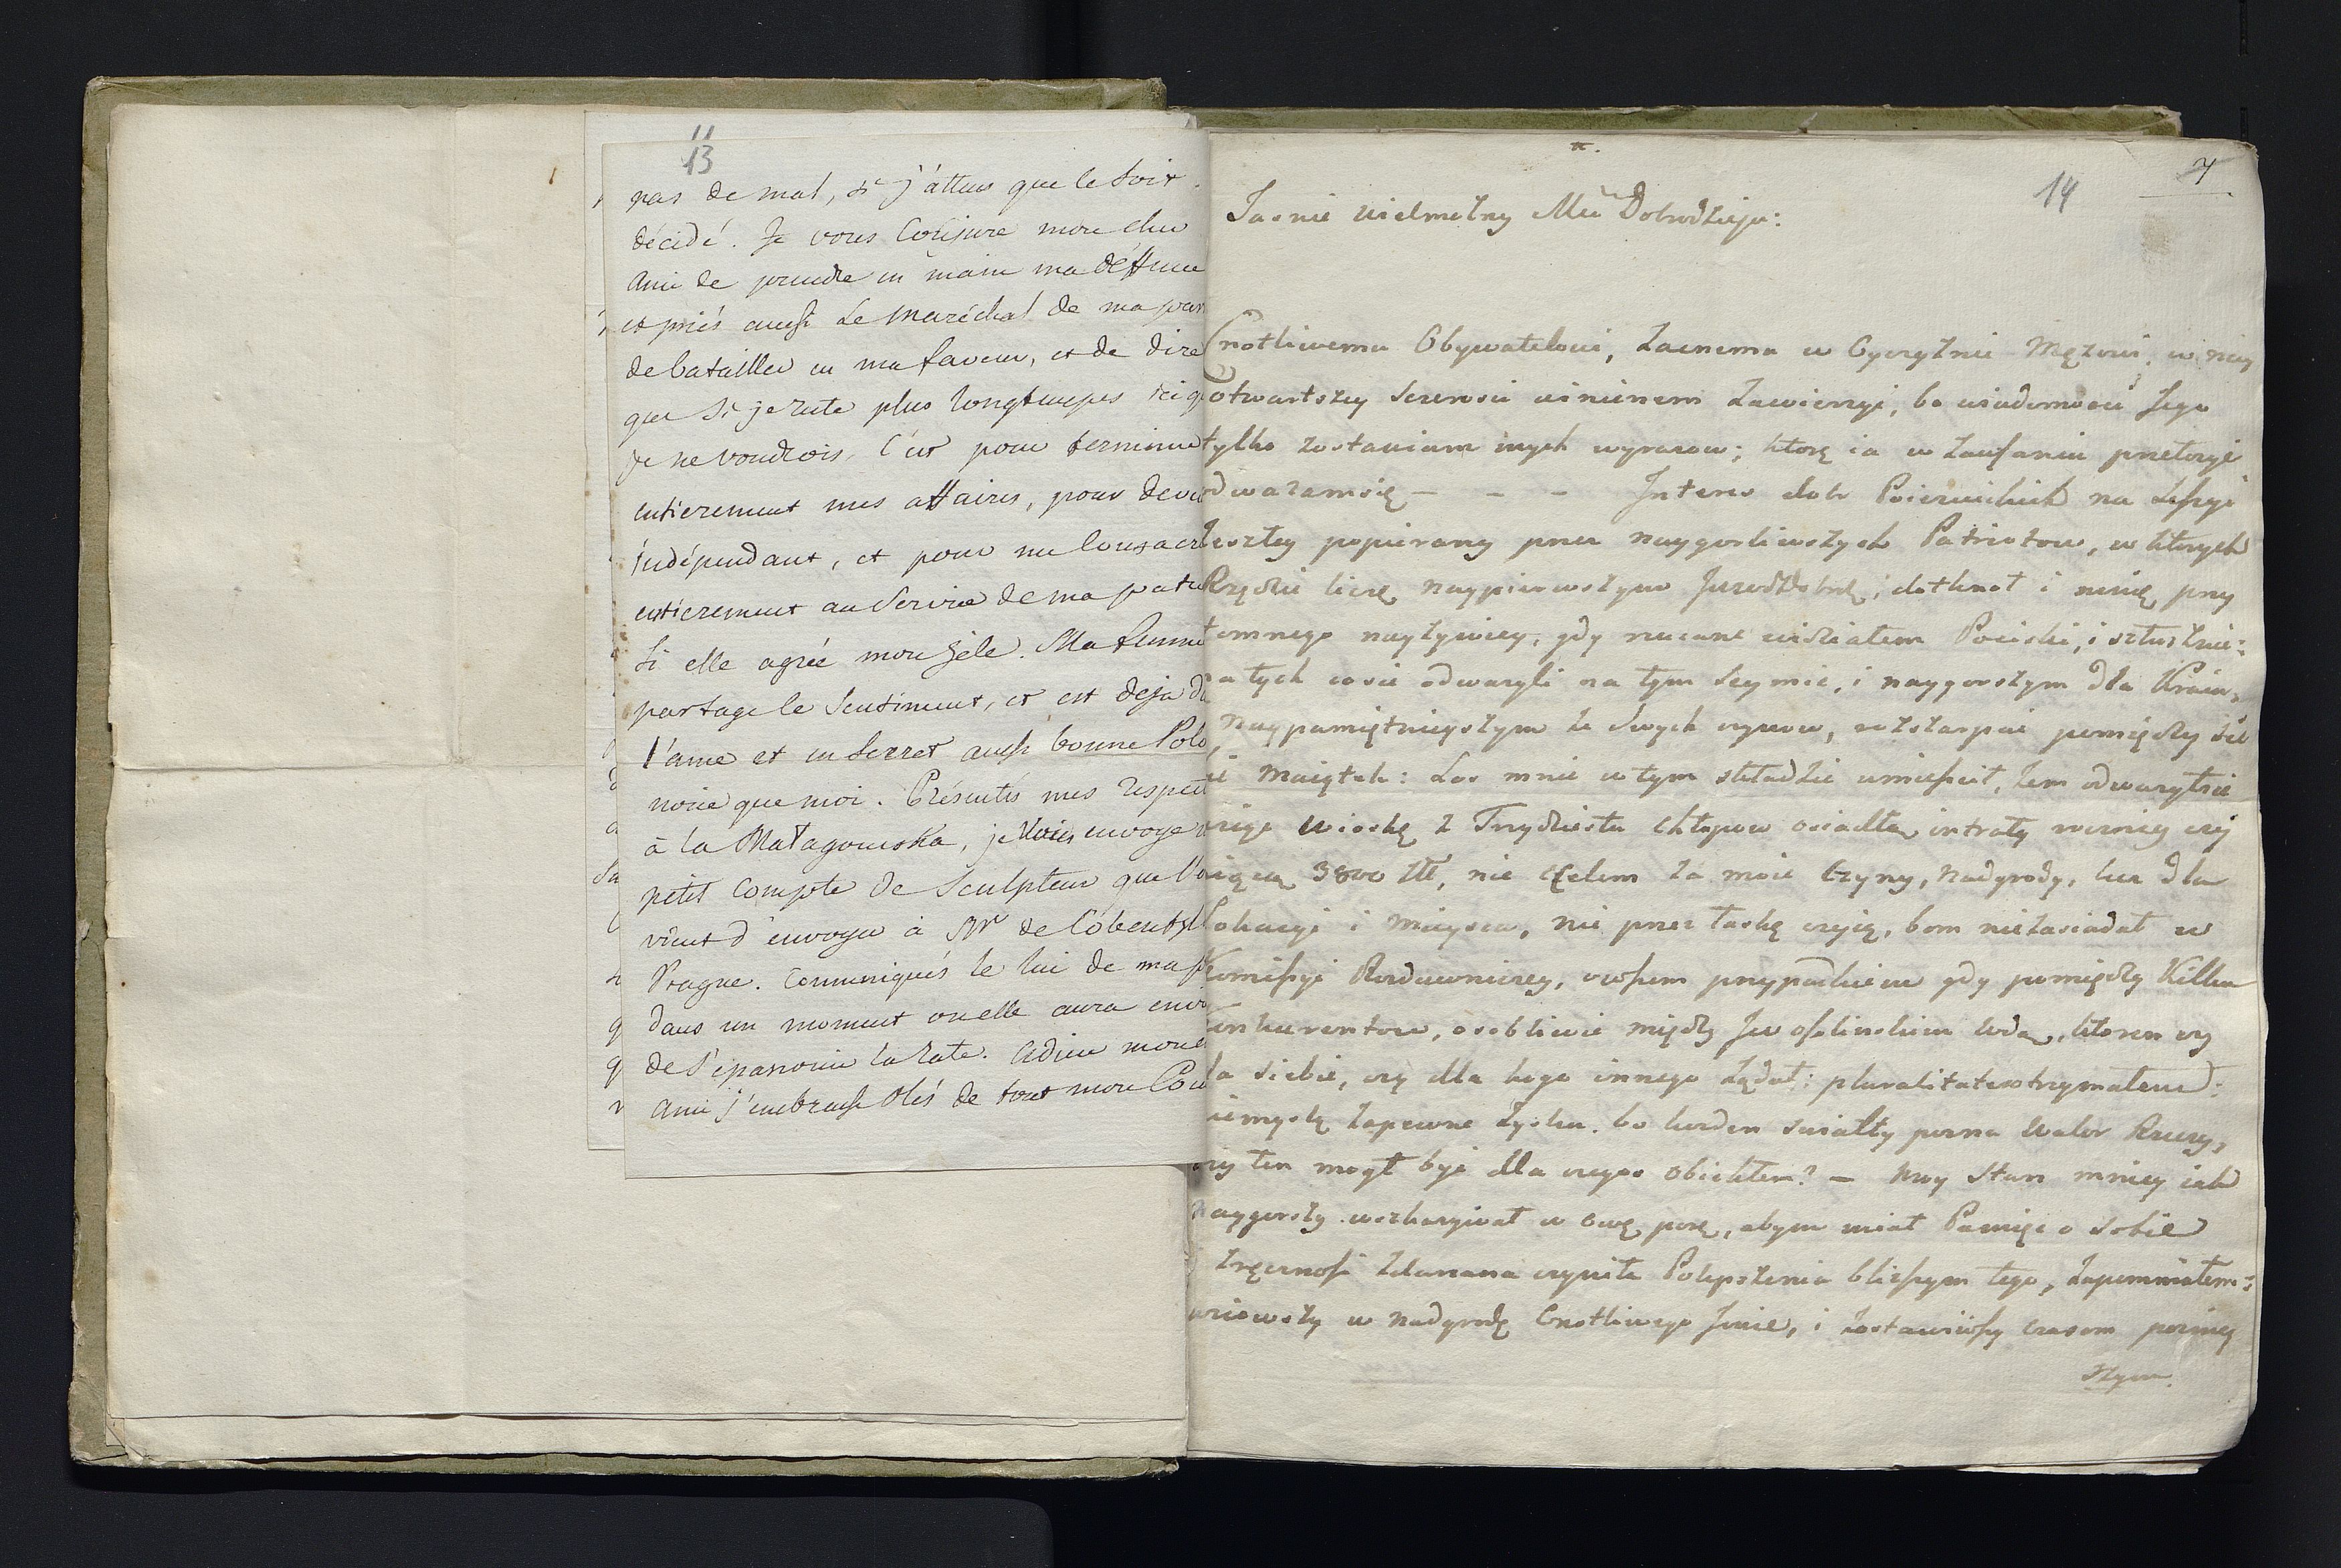 11
13
pas de mal, si j'áttens que le soit
décidé. Je vous Conjure mon cher
Ami de prendre en main ma déffence
et priés aussi Le Maréchal de ma par
de batailler en ma faveur, et de dire
que si je reste plus longtemps ici q
je ne voudrois, C'est pour terminer
entierement mes affaires, pour deve
indépendant, et pour me Consacre
entierement au Service de ma patri
si elle agrée mon zêle. Ma femme
partage le Sentiment, et est deja d
l'ame et en secret aussi bonne Polo
noise que moi. Présentés mes respect
à la Matagowska, je Vous envoye
petit Compte de Sculpteur que l'o
vient d'envoyer à Mr de Cobentzl
Prague. Comuniqués le lui de ma p
dans un moment ou elle aura envi
de s'épanouir la rate. Adieu mon
Ami j'embrasse Olés de tout mon Coeu
14
7
Jasnie Wielmożny Mci Dobrodzieju:
Cnotliwemu Obywatelowi, zacnemu w Oyczyźnie Mężowi, w nay
otwartszey szczerości winienem zawierzyć, bo wiadomości Jego
tylko zostawiam mych wyrazow; ktorę ia w zaufaniu przełożyć
odważamsię - - - Interes dobr Poiezuickich na Sessyi
zeszłey popierany przez naygorliwszych Patriotow, w ktorych
Rzędzie liczę naypierwszym JWWDobrdz; dotknoł i mnię przy
tomnego nayżywiey, gdy rzucane widziałem Pociski, i słusznie:
na tych co sie odważyli na tym Seymie, i naygorszym dla Kraiu,
naypamiętnieyszym ze swych czynow, rozszarpać pomiędzy sie
bie Maiątek: Los mnie w tym składzie umieścił, żem odważyłsie
wziąć wioskę z Trzydziestu chłopow osiadłą intratę roczniey czy
niącą 3800 złł, nie celem za moie Czyny, Nadgrody, lecz dla
Lokacyi i Mieysca, nie przez łaskę czyię, bom niezasiadał w
Komissyi Rozdawniczey, owszem przypadkiem gdy pomiędzy Kilku
konkurentow, osobliwie między JW Ossolinskim Wdą, ktoren czy
dla siebie, czy dla kogo innego żądał: pluralitate otrzymałem:
niemyślę zapewne zysku. bo każden światły pozna Walor Rzeczy,
czy ten mogł być dla czego obiektem? - Moy Stan mniey iak
naygorszy wskazywał w owę porę, abym miał Pamięć o sobie
zręczność zdarzona czyniła Polepszenia bliższym tego, zapomniałem:
wziowszy w nadgrodę Cnotliwego Imie, i zostawiwszy czasom poźniey
szym.